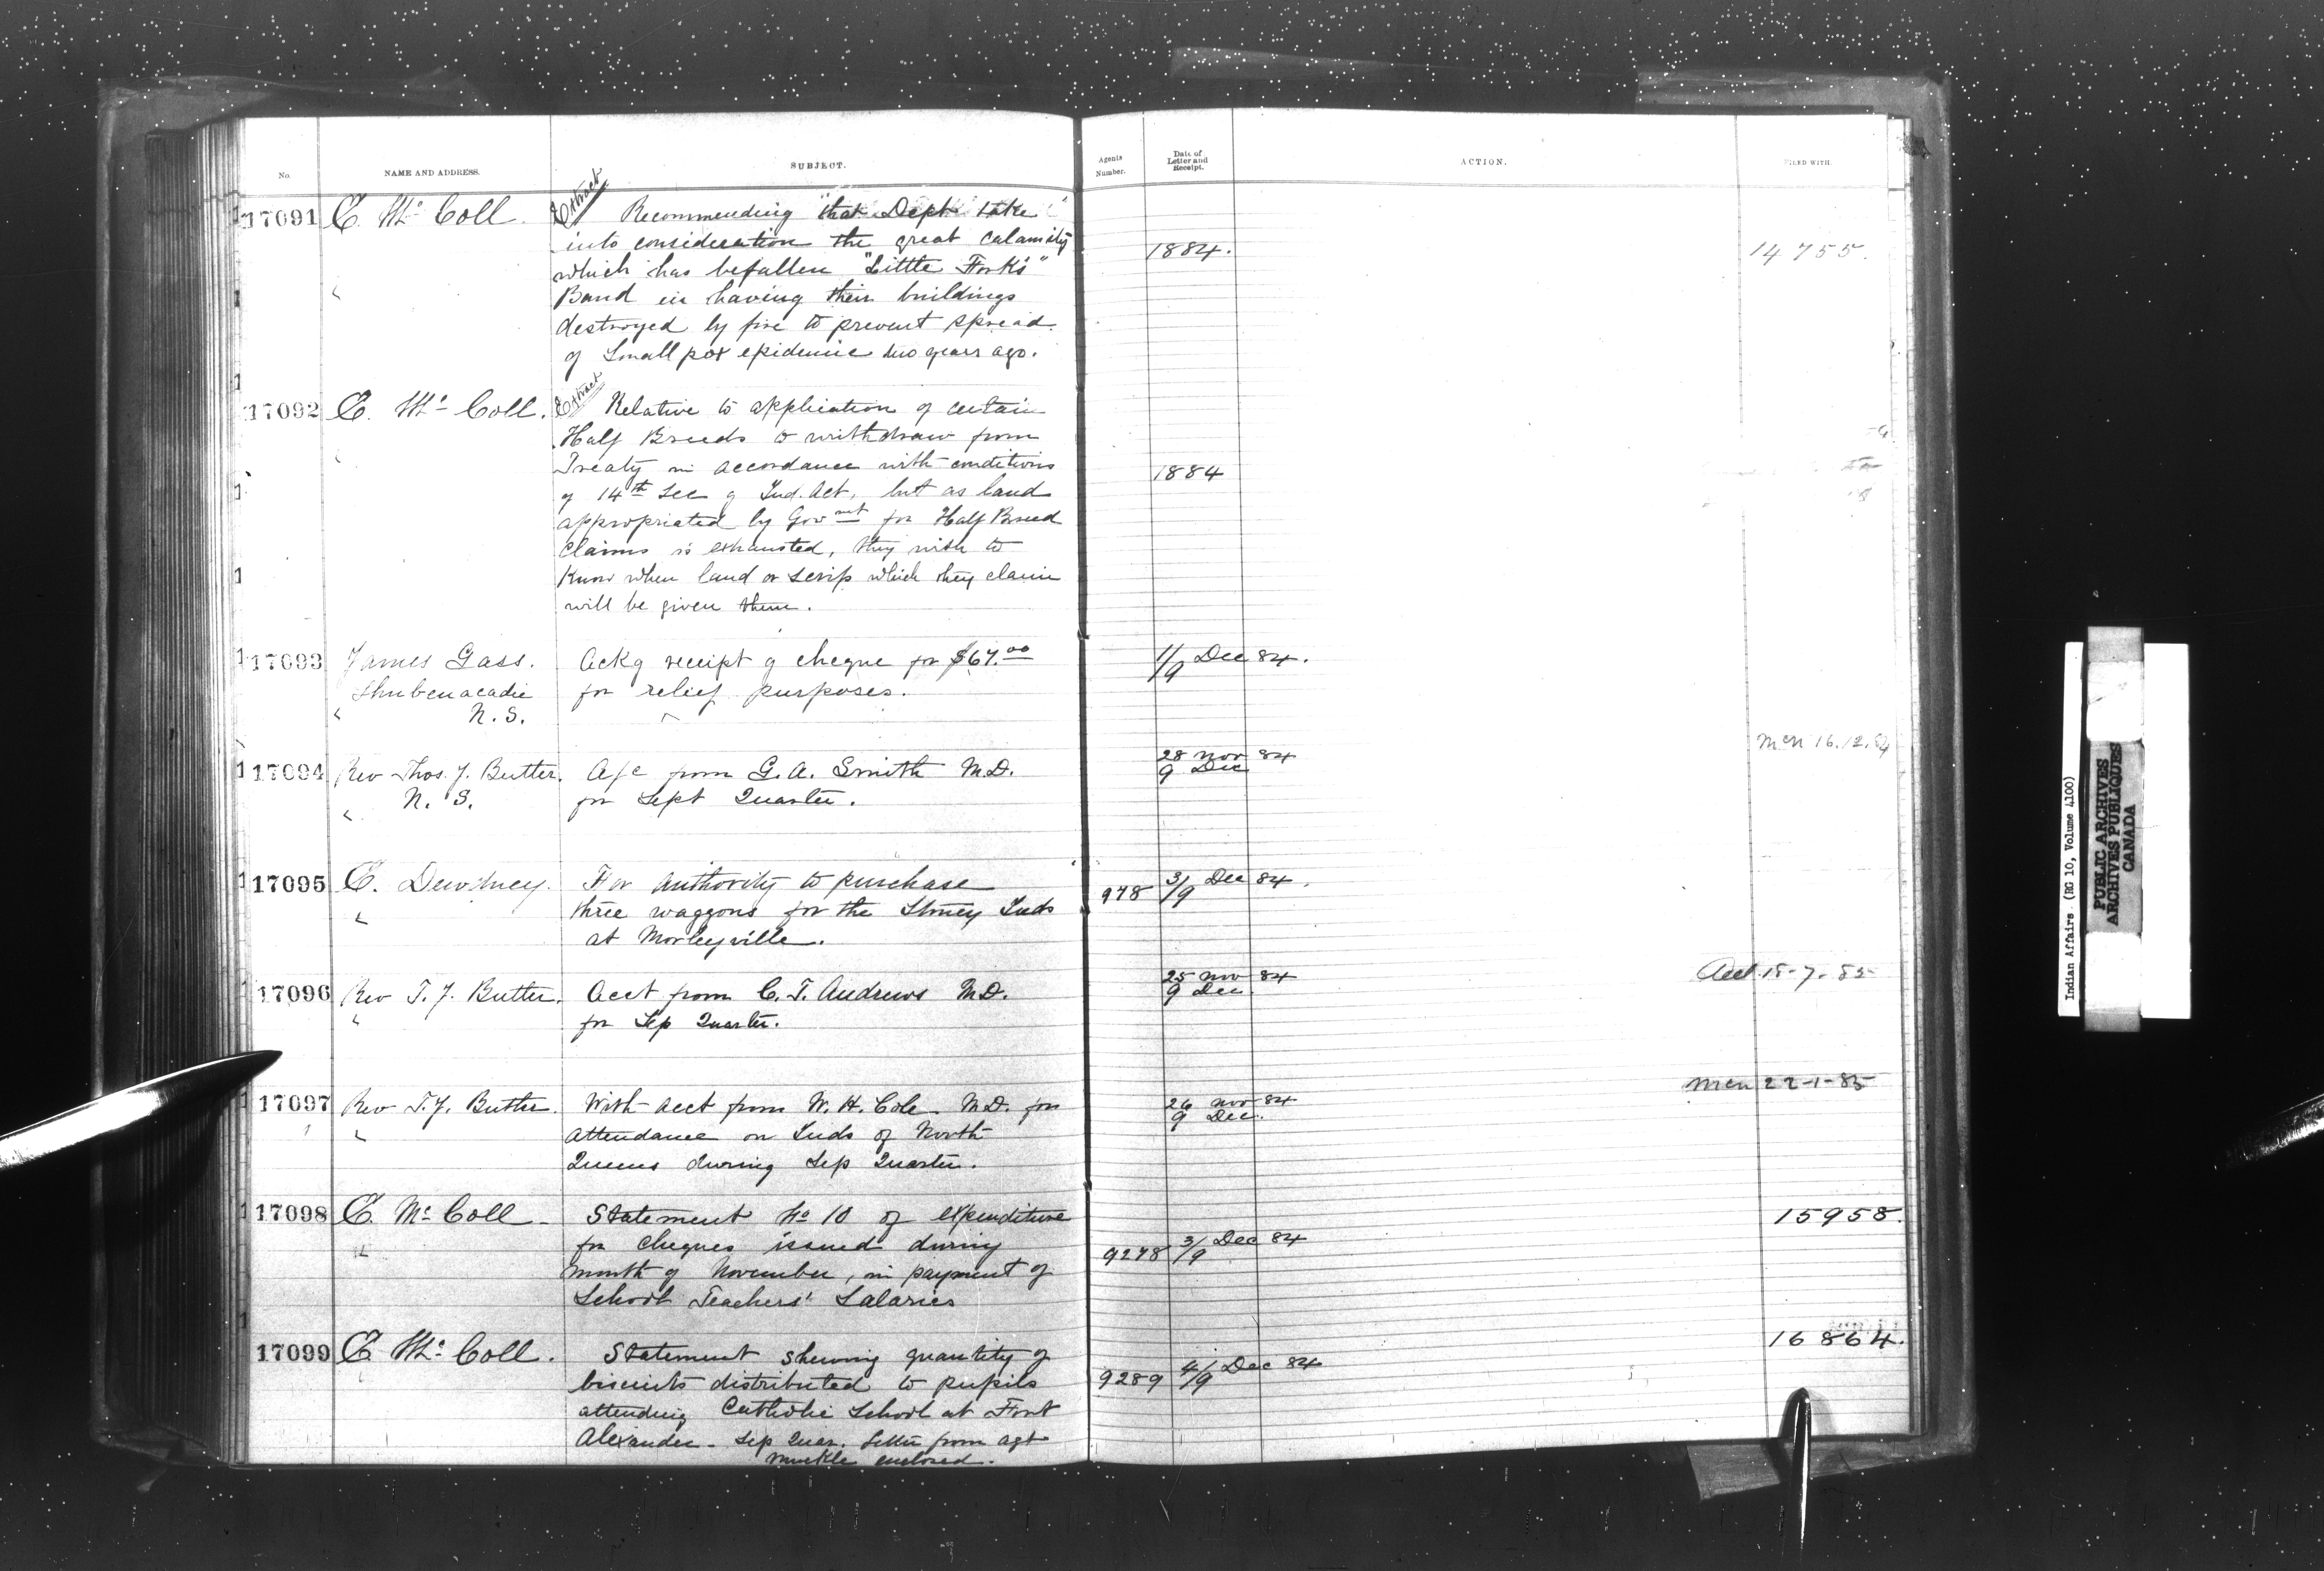 No. NAME AND ADDRESS. SUBJECT. Agents Number. Date of Letter and Receipt. ACTION. FILED WITH.
17091 E. Mc Coll. Extract Recommending that Dept take
into consideration the great calamity 1884. 14755.
which has befallen "Little Forks"
Band in having their buildings
destroyed by fire to prevent spread
of Small pox epidemic two years ago.
17092 E. Mc Coll. Extract Relative to application of certain
Half Breeds to withdraw from
Treaty in accordance with conditions 1884
of 14th Sec of Ind. Act, but as land
appropriated by Govmnt for Half Breed
Claims is exhausted, they wish to
Know when land or scrip which they claim
will be given them.
17093 James Gass. Ackg receipt of cheque for $67.00 1/9 Dec 84.
Shubenacadie for relief purposes.
N.S.
Mem 16.12.84
17094 Rev Thos. J. Butler. A/c from G. A. Smith M.D. 28 Nov 84
N. S. for Sept Quarter. 9 Dec
17095 E. Dewdney. For authority to purchase 978 3/9 Dec 84.
three waggons for the Stoney Inds
at Morleyville.
17096 Rev T. J. Butler. Acct from C. T. Andrews M.D. 25 Nov 84 15-7-85
for Sep Quarter. 9 Dec
Mem 22-1-85
17097 Rev T. J. Butler. With acct from W. H. Cole M.D. for 26 Nov 84
attendance on Inds of North 9 Dec.
Queens during Sep Quarter.
17098 E. Mc Coll Statement No 10 of expenditure 15958.
for cheques issued during 9278 3/9 Dec 84
month of November, in payment of
School Teachers' Salaries
17099 E. Mc Coll. Statement shewing quantity of 16864.
biscuits distributed to pupils 9289 4/9 Dec 84
attending Catholic School at Fort
Alexander - Sep Quar. Letter from agt
Muckle enclosed.
Indian Affairs. (RG 10, Volume 4100)
PUBLIC ARCHIVES
ARCHIVES PUBLIQUES
CANADA